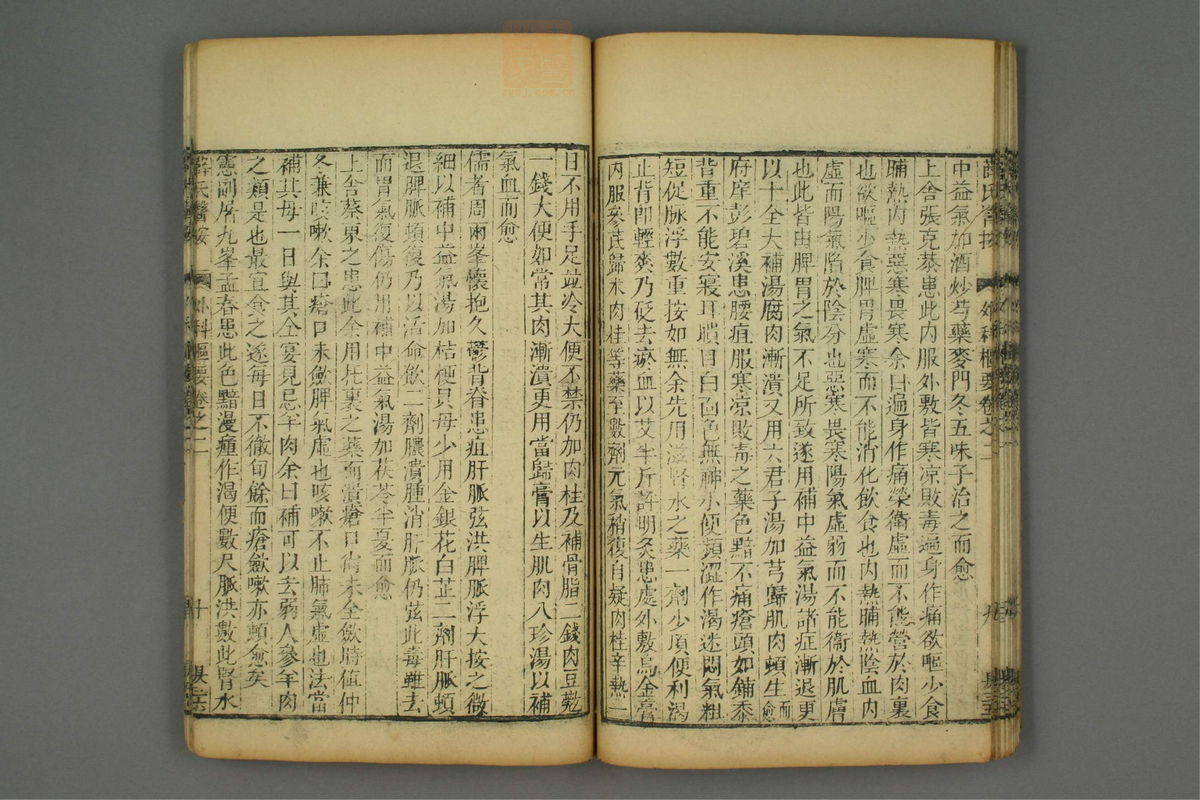 薛氏醫按 外科樞要卷之二 九
中益氣加酒炒芍藥麥門冬五味子治之而愈
上舍張克恭患此內服外敷皆寒凉敗毒遍身作痛欲嘔少食
晡熱內熱惡寒畏寒余曰遍身作痛榮衛虛而不能營於肉裏
也欲嘔少食脾胃虛寒而不能消化飲食也內熱晡熱陰血內
虛而陽氣陷於陰分也惡寒畏寒陽氣虛弱而不能衞於肌膚
也此皆由脾胃之氣不足所致遂用補中益氣湯諸症漸退更
以十全大補湯腐肉漸潰又用六君子湯加芎歸肌肉頓生而愈
府庠彭碧溪患腰疽服寒凉敗毒之藥色黯不痛瘡頭如鋪黍
背重不能安寢耳聵目白面色無神小便頻澀作渴迷悶氣粗
短促脉浮數重按如無余先用滋腎水之藥一劑少頃便利渴
止背即輕爽乃砭去瘀血以艾半斤許明灸患處外敷烏金膏
內服參芪歸朮肉桂等藥至數劑元氣稍復自疑肉桂辛熱一
日不用手足並冷大便不禁仍加肉桂及補骨脂二錢肉豆蔲
一錢大便如常其肉漸潰更用當歸膏以生肌肉八珍湯以補
氣血而愈
儒者周雨峯懷抱久鬱背脊患疽肝脈弦洪脾脈浮大按之微
細以補中益氣湯加桔梗貝母少用金銀花白芷二劑肝脈頓
退脾脈頓復乃以活命飲二劑膿潰腫消肝脈仍弦此毒雖去
而胃氣復傷仍用補中益氣湯加茯苓半夏而愈
上舍蔡東之患此余用托裏之藥而潰瘡口尚未全歛時値仲
冬兼咳嗽余曰瘡口未歛脾氣虛也咳嗽不止肺氣虛也法當
補其母一日與其仝宴見忌羊肉余曰補可以去弱人參羊肉
之類是也最宜食之遂每日不徹旬餘而瘡歛嗽亦頓愈矣
憲副屠九峯孟春患此色黯漫腫作渴便數尺脈洪數此腎水
薛氏醫按 外科樞要卷之二 十